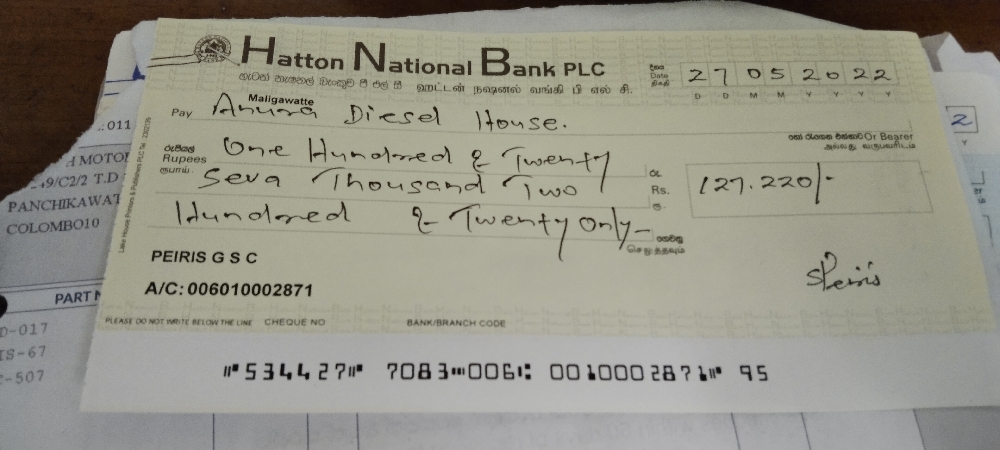 Hatton National Bank PLC
හැටන් නැෂනල් බෑංකුව පී එල් සී ஹட்டன் நஷனல் வங்கி பி எல் சி.
දිනය
Date
திகதி
27052022
D D M M Y Y Y Y
Maligawatte
Pay Anura Diesel House.
Or Bearer
அல்லது வருபவரிடம்
රුපියල්
Rupees
ரூபாய்
One Hundred & Twenty
Seva Thousand Two
Hundred & Twenty Only
රු.
Rs.
ரூ.
127.220/-
PEIRIS G S C
A/C: 006010002871
SPeiris
PLEASE DO NOT WRITE BELOW THE LINE CHEQUE NO BANK/BRANCH CODE
⑈534427⑈ 7083⑉006⑆ 0010002871⑈ 95
Lake House Printers & Publishers PLC
011
MOTO
49/C2/2 T.D
PANCHIKAWAT
COLOMBO10
PART N
D-017
IS-67
-507
2
Y